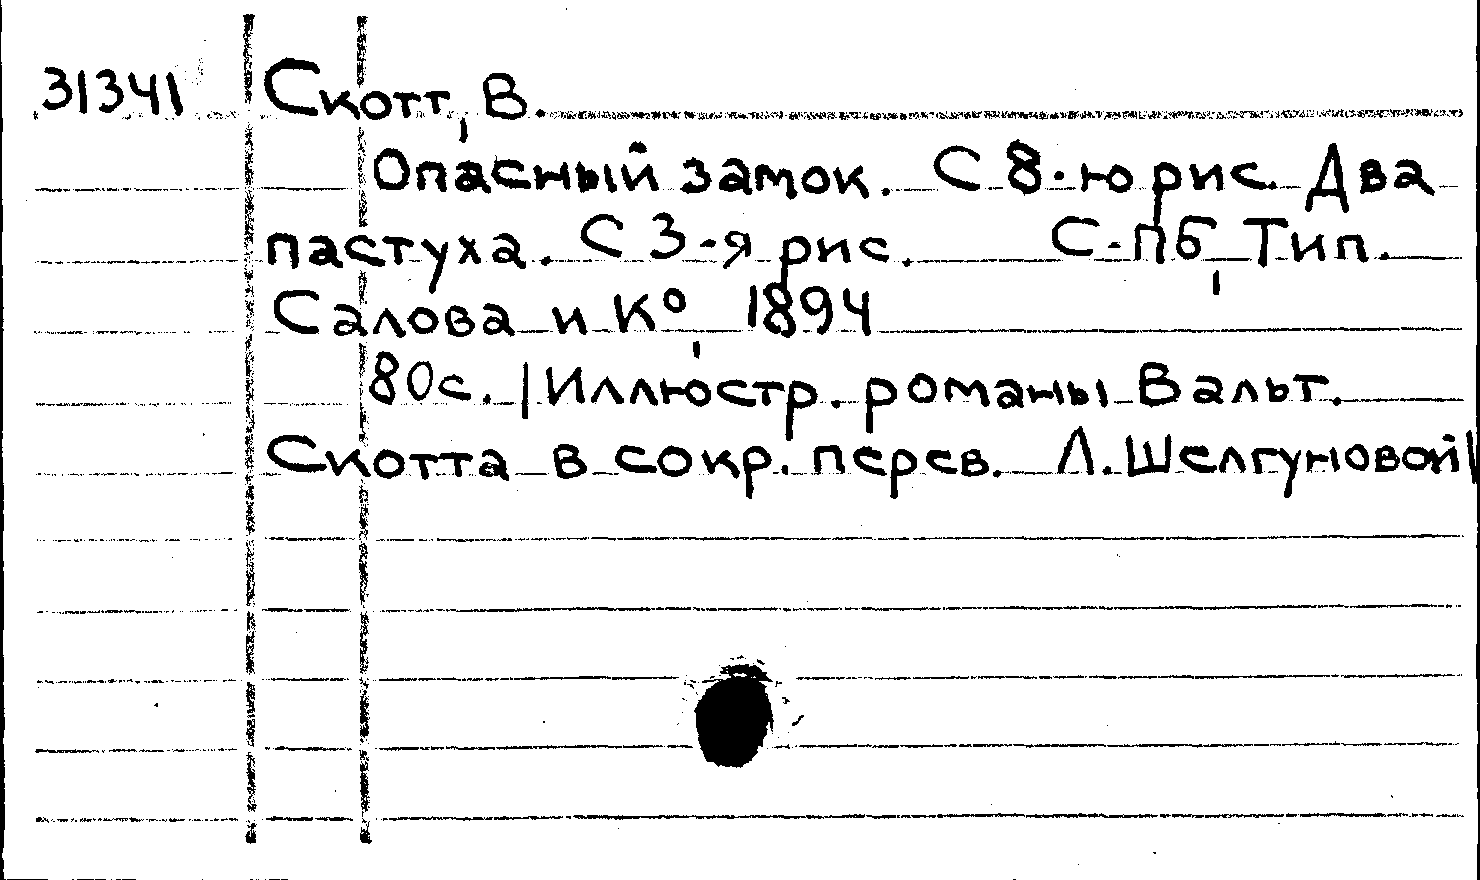 31341 Скотт, В.
Опасный замок. С 8-ю рис. Два
пастуха. С 3-я рис. С-Пб, Тип.
Салова и К°, 1894
80с. |Иллюстр. романы Вальт.
Скотта в сокр. перев. Л. Шелгуновой|